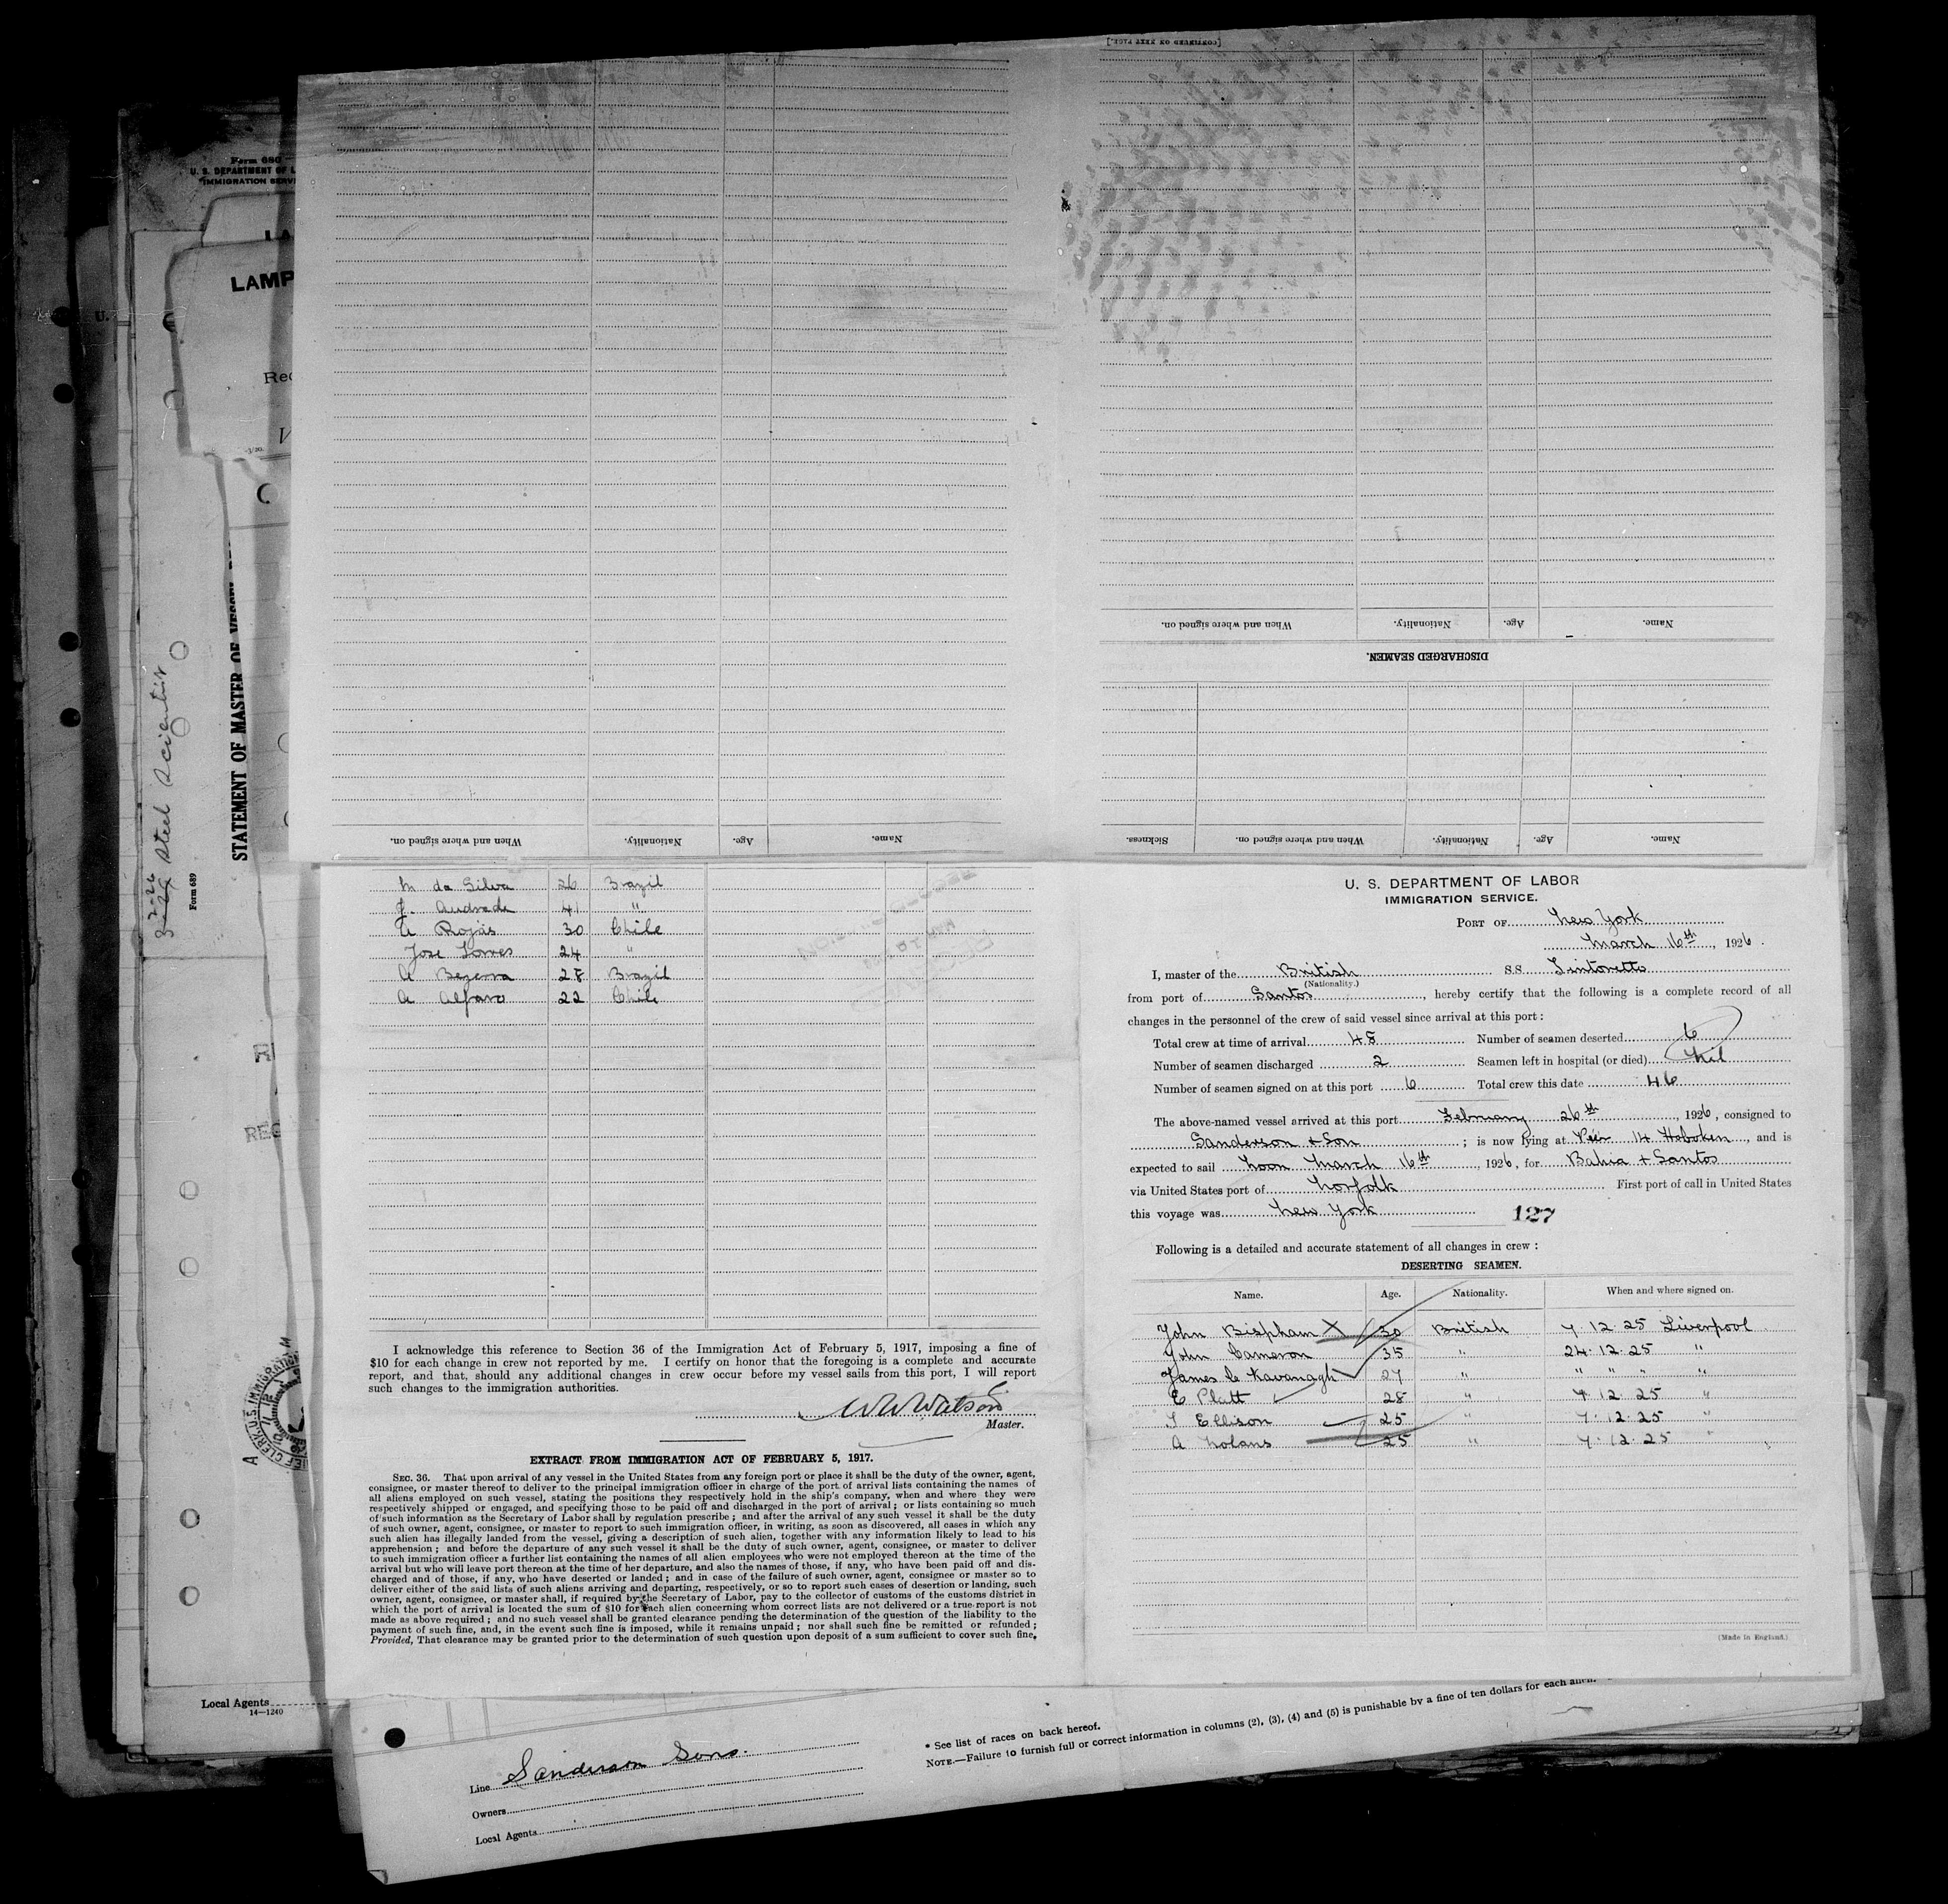 [CONTINUED ON NEXT PAGE.]
When and where signed on.
Nationality.
Age.
Name.
DISCHARGED SEAMEN.
When and where signed on.
Nationality.
Age.
Name.
Sickness.
When and where signed on.
Nationality.
Age.
Name.
Form 680
U. S. DEPARTMENT OF L
IMMIGRATION SERV
LA
LAMP
Rec
STATEMENT OF MASTER OF VESSEL
Form 689
Steel Scientist
M da Silva 26 Brazil
J. Andrade 41 "
A Rojas 30 Chile
Jose Torres 24 "
A Bezerra 28 Brazil
A Alfaro 22 Chile
I acknowledge this reference to Section 36 of the Immigration Act of February 5, 1917, imposing a fine of
$10 for each change in crew not reported by me. I certify on honor that the foregoing is a complete and accurate
report, and that, should any additional changes in crew occur before my vessel sails from this port, I will report
such changes to the immigration authorities.
W W Watson
Master.
EXTRACT FROM IMMIGRATION ACT OF FEBRUARY 5, 1917.
SEC. 36. That upon arrival of any vessel in the United States from any foreign port or place it shall be the duty of the owner, agent,
consignee, or master thereof to deliver to the principal immigration officer in charge of the port of arrival lists containing the names of
all aliens employed on such vessel, stating the positions they respectively hold in the ship's company, when and where they were
respectively shipped or engaged, and specifying those to be paid off and discharged in the port of arrival; or lists containing so much
of such information as the Secretary of Labor shall by regulation prescribe; and after the arrival of any such vessel it shall be the duty
of such owner, agent, consignee, or master to report to such immigration officer, in writing, as soon as discovered, all cases in which any
such alien has illegally landed from the vessel, giving a description of such alien, together with any information likely to lead to his
apprehension; and before the departure of any such vessel it shall be the duty of such owner, agent, consignee, or master to deliver
to such immigration officer a further list containing the names of all alien employees who were not employed thereon at the time of the
arrival but who will leave port thereon at the time of her departure, and also the names of those, if any, who have been paid off and dis-
charged and of those, if any, who have deserted or landed; and in case of the failure of such owner, agent, consignee or master so to
deliver either of the said lists of such aliens arriving and departing, respectively, or so to report such cases of desertion or landing, such
owner, agent, consignee, or master shall, if required by the Secretary of Labor, pay to the collector of customs of the customs district in
which the port of arrival is located the sum of $10 for each alien concerning whom correct lists are not delivered or a true report is not
made as above required; and no such vessel shall be granted clearance pending the determination of the question of the liability to the
payment of such fine, and, in the event such fine is imposed, while it remains unpaid; nor shall such fine be remitted or refunded;
Provided, That clearance may be granted prior to the determination of such question upon deposit of a sum sufficient to cover such fine.
U. S. DEPARTMENT OF LABOR
IMMIGRATION SERVICE.
PORT OF New York
March 16th, 1926.
I, master of the British SS Tintoretto
(Nationality.)
from port of Santos, hereby certify that the following is a complete record of all
changes in the personnel of the crew of said vessel since arrival at this port:
Total crew at time of arrival 48 Number of seamen deserted 6
Number of seamen discharged 2 Seamen left in hospital (or died) Nil
Number of seamen signed on at this port 6 Total crew this date 46
The above-named vessel arrived at this port February 26th, 1926, consigned to
Sanderson & Son; is now lying at Pier 14 Hoboken, and is
expected to sail Noon March 16th, 1926, for Bahia + Santos
via United States port of Norfolk First port of call in United States
this voyage was New York
127
Following is a detailed and accurate statement of all changes in crew:
DESERTING SEAMEN.
Name. Age. Nationality. When and where signed on.
John Bispham X 30 British 7.12.25 Liverpool
John Cameron 35 " 24.12.25 "
James C Kavanagh 27 " " " " "
E Platt 28 " 7.12.25 "
T Ellison 25 " 7.12.25 "
A Nolans 25 " 7.12.25 "
(Made in England.)
Local Agents
14—1240
* See list of races on back hereof.
NOTE.—Failure to furnish full or correct information in columns (2), (3), (4) and (5) is punishable by a fine of ten dollars for each alien.
Line Sanderson Sons.
Owners
Local Agents